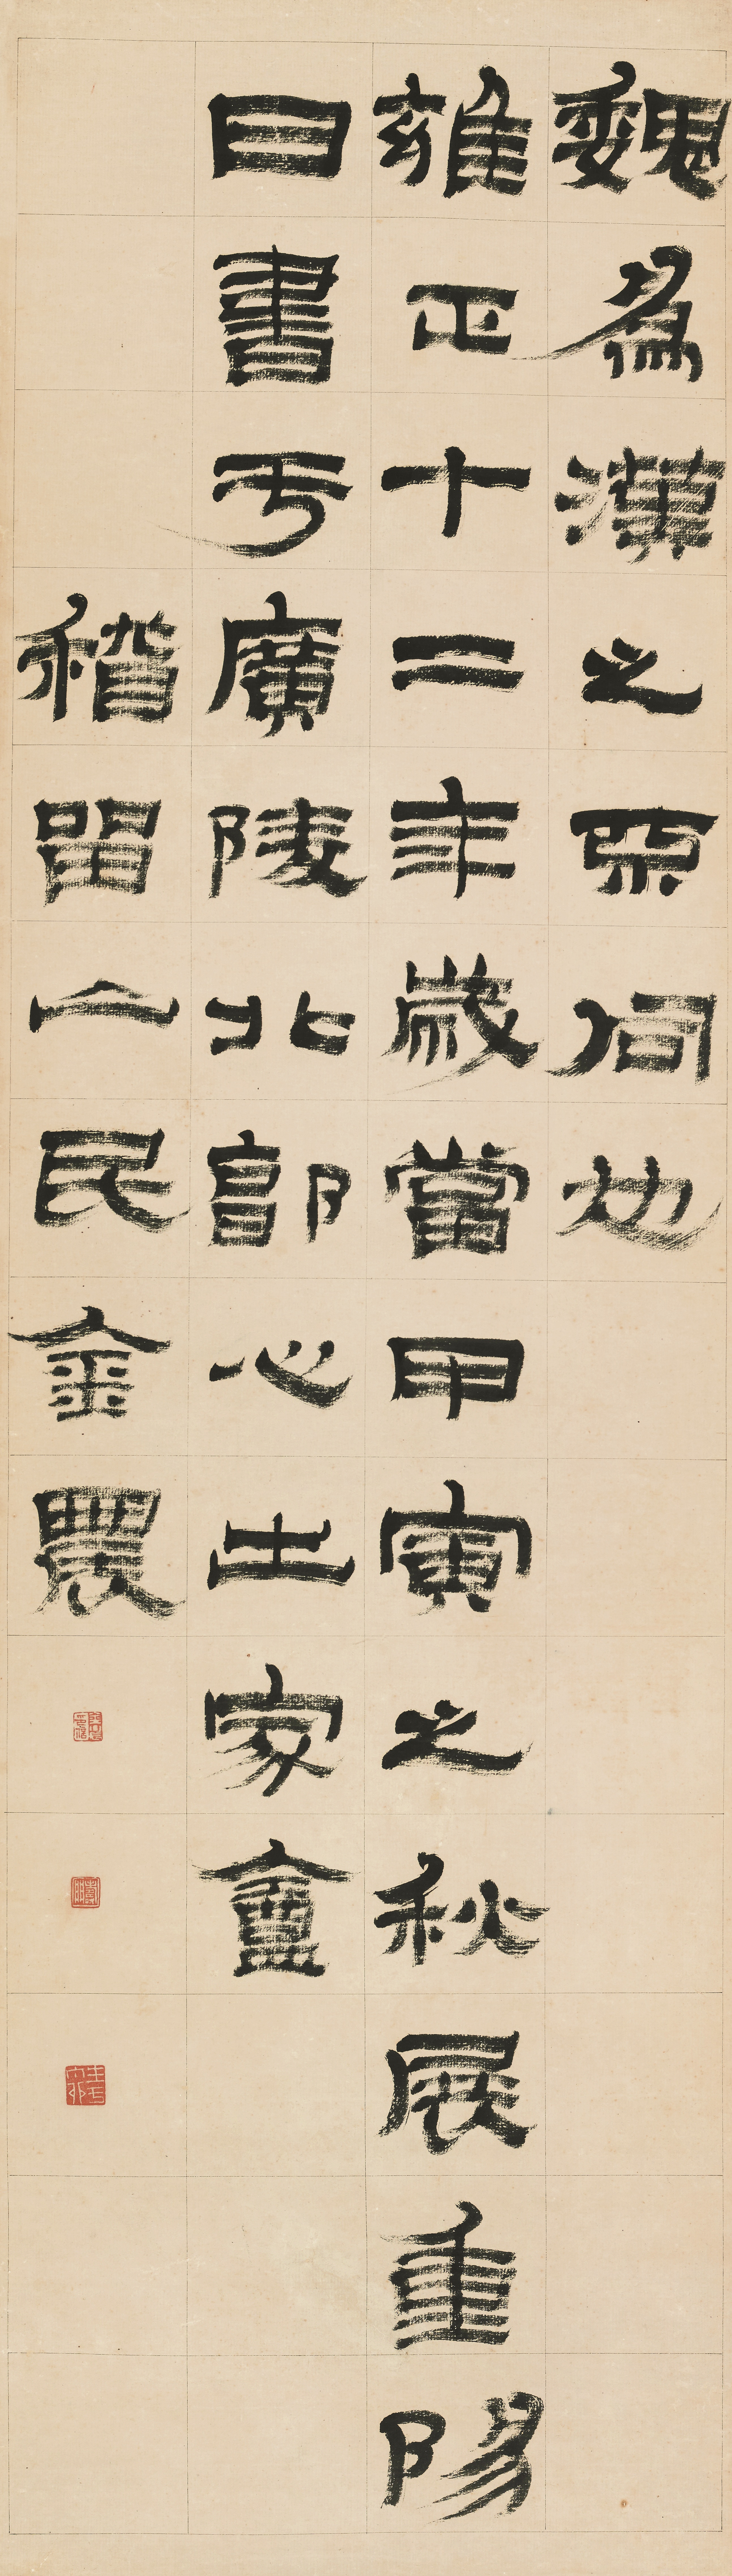 魏為漢之伺也
雍正十二年歲當甲寅之秋展重陽
日書于廣陵北郭心出家盦
稽留山民金農